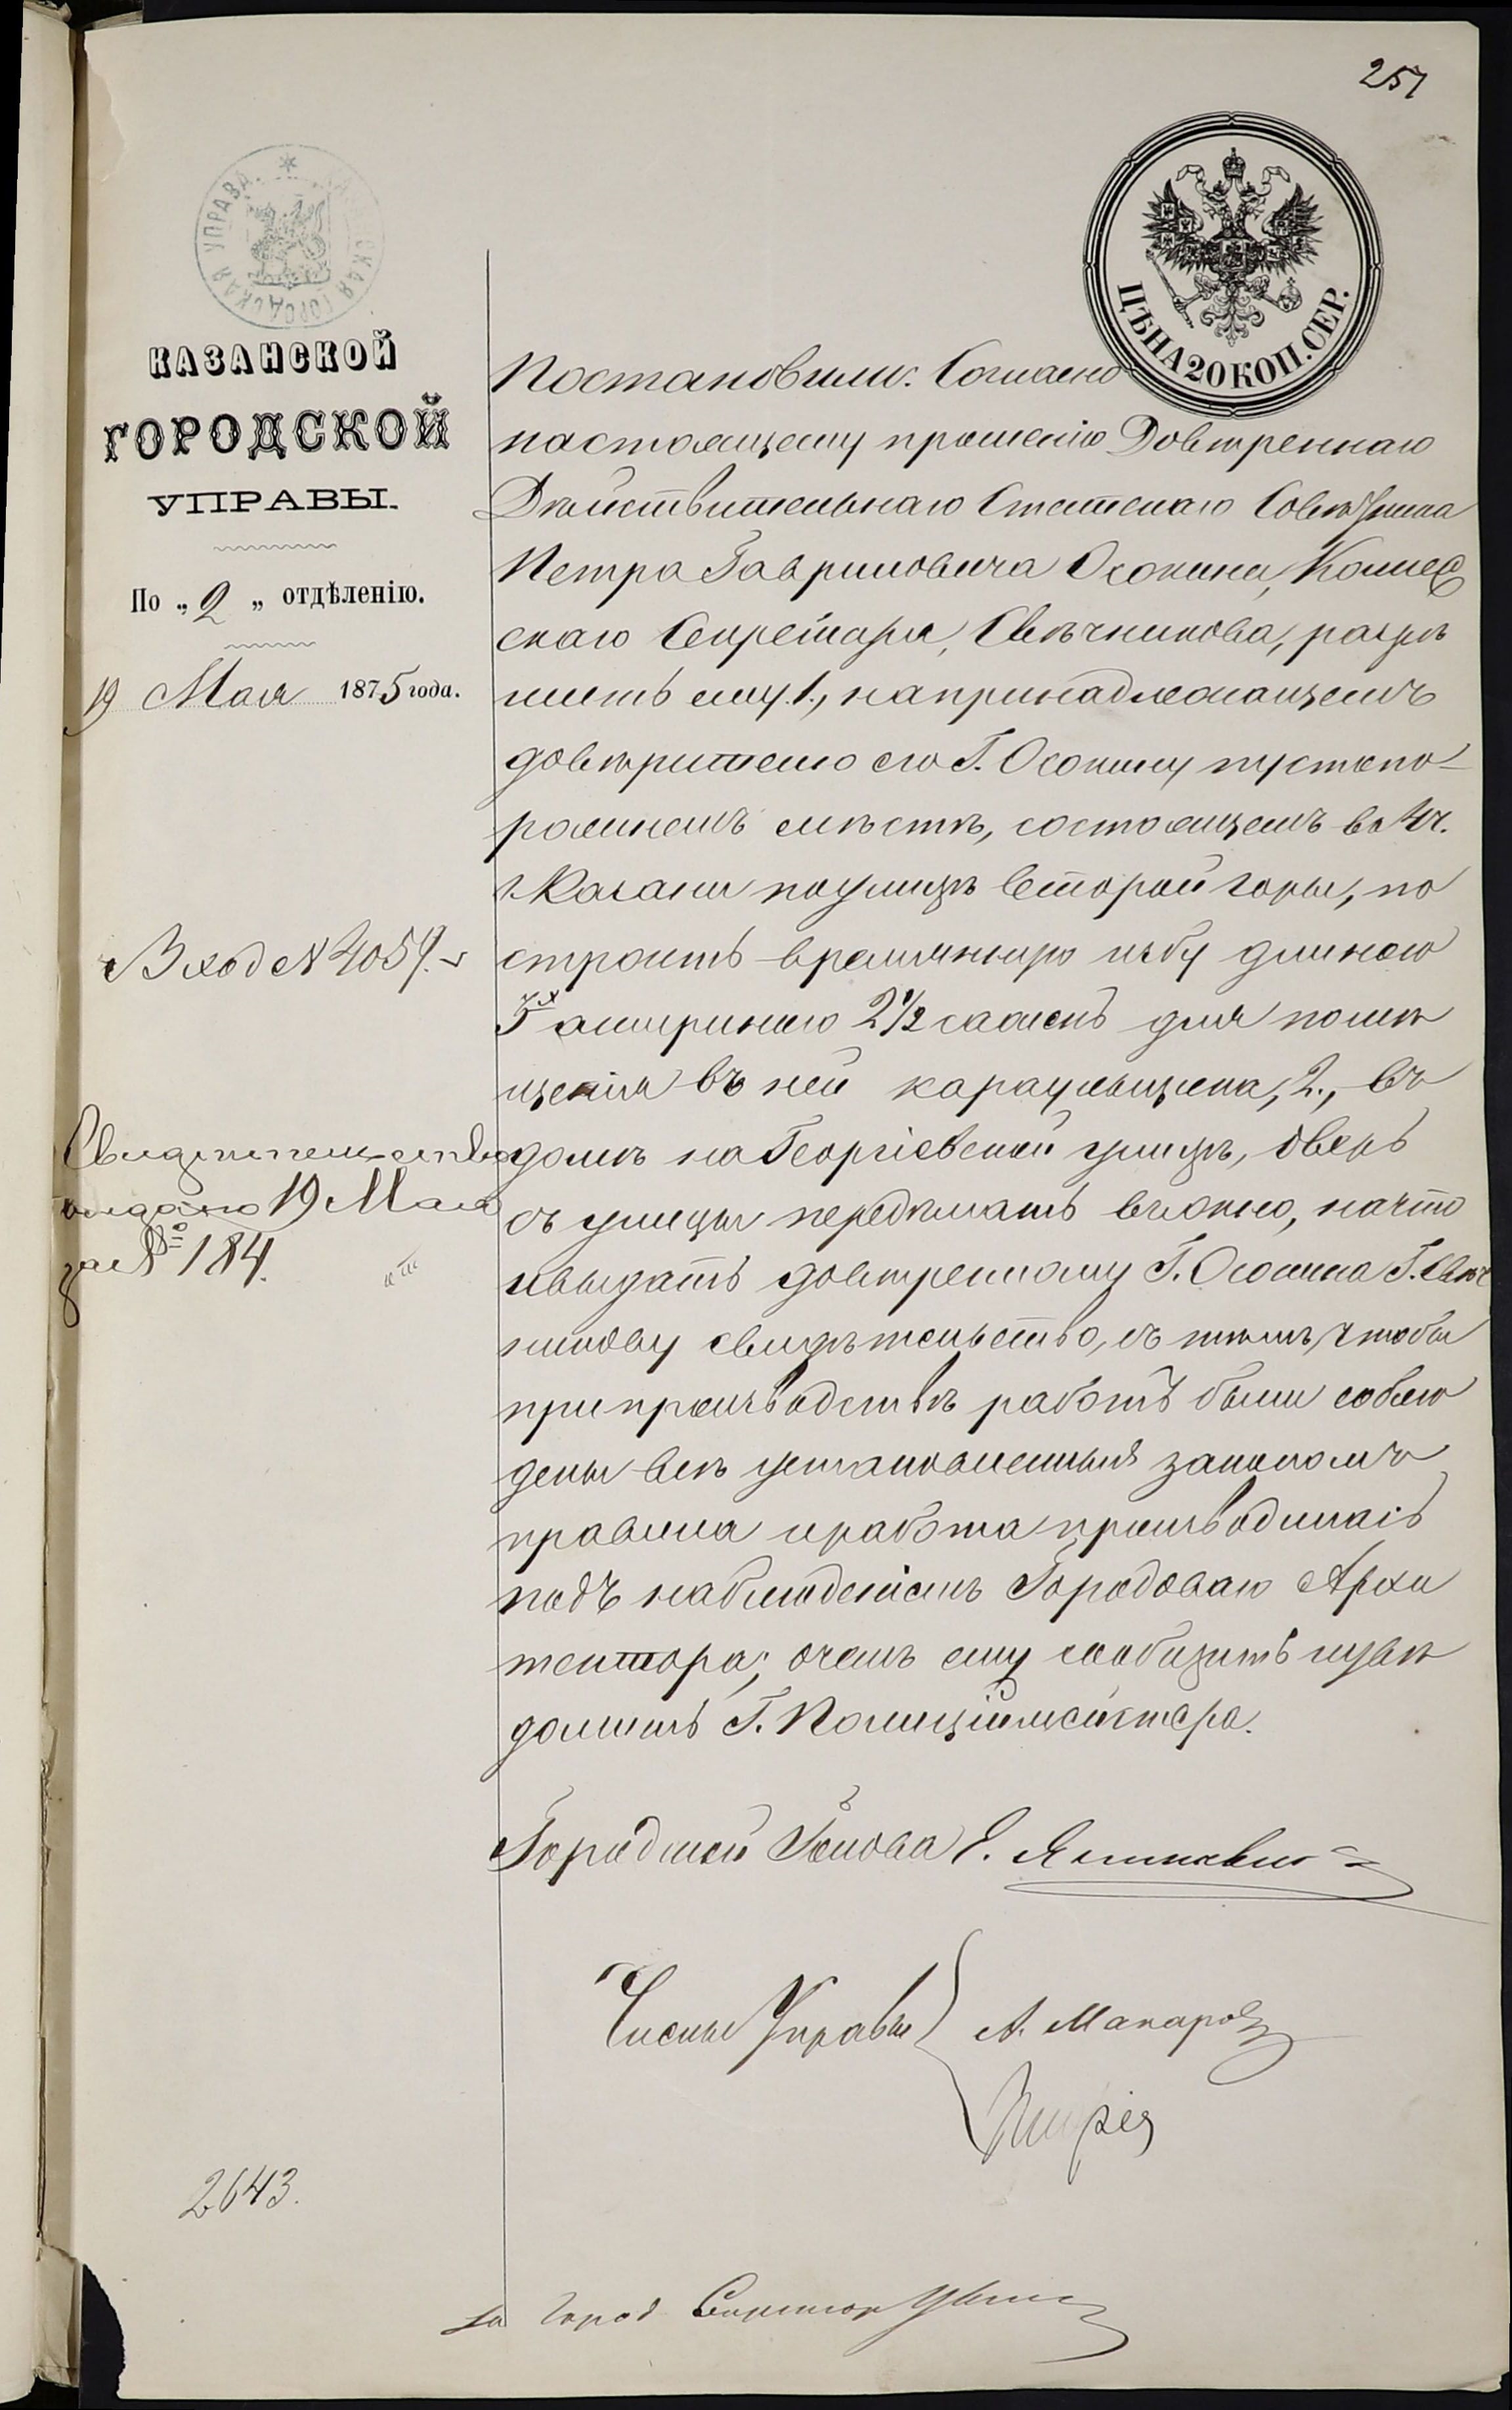 257
КАЗАНСКАЯ ГОРОДСКАЯ УПРАВА.
ЦѢНА 20 КОП. СЕР.
КАЗАНСКОЙ
ГОРОДСКОЙ
УПРАВЫ.
По „ 2 „ отдѣленію.
19 Мая 1875 года.
Вход № 4059.
Свидѣтельство
выдано 19 Мая
за № 184.
2643.
Постановили: Согласно
настоящему прошенію Довѣреннаго
Дѣйствительнаго Статскаго Совѣтника
Петра Гавриловича Осокина, Коллеж
скаго Секретаря, Свѣчникова, разрѣ
шить ему 1., на принадлежащемъ
довѣрителю его Г. Осокину пустопо-
рожнемъ мѣстѣ, состоящемъ во 2 ч.
г. Казани по улицѣ Второй горы, по
строить времянную избу длиною
5х а шириною 2 1/2 сажень для помѣ
щенія въ ней караульщика, 2., въ
домѣ на Георгіевской улицѣ, дверь
съ улицы передѣлать въ окно, на что
и выдать довѣренному Г. Осокина Г. Свѣч
никову свидѣтельство, съ тѣмъ, чтобы
при производствѣ работъ были соблю
дены всѣ установленныя закономъ
правила и работа производилась
подъ наблюденіемъ Городоваго Архи
тектора; о чемъ ему сообщить и увѣ
домить Г. Полиціймейстера.
Городской Голова Э. Янишевскій
Члены Управы А. Макаровъ
За Город Секретар